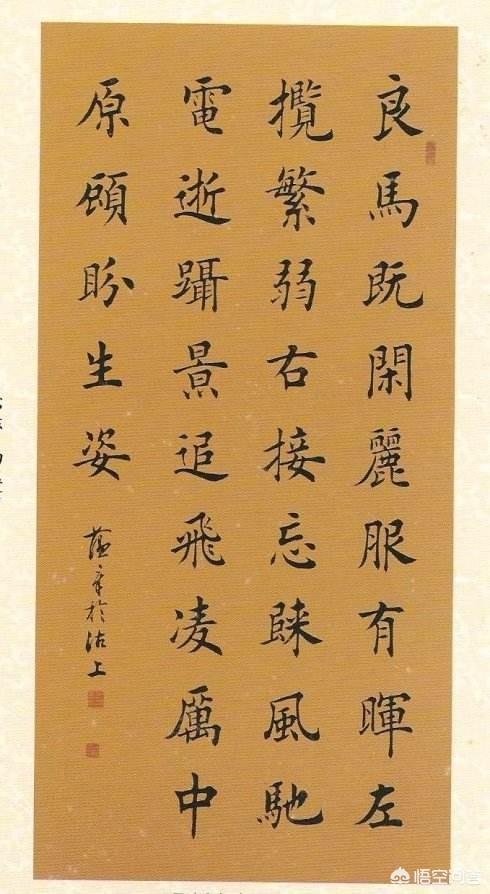 良馬既閑麗服有暉左
攬繁弱右接忘䠞風馳
電逝躡景追飛凌厲中
原顧盼生姿
於沽上
悟空问答